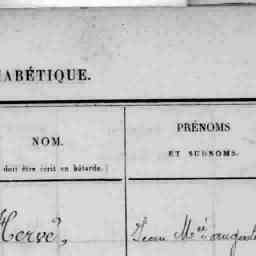 HABÉTIQUE.
NOM.
doit être écrit en bâtarde.)
PRÉNOMS
ET SURNOMS.
Hervé,
Jean M